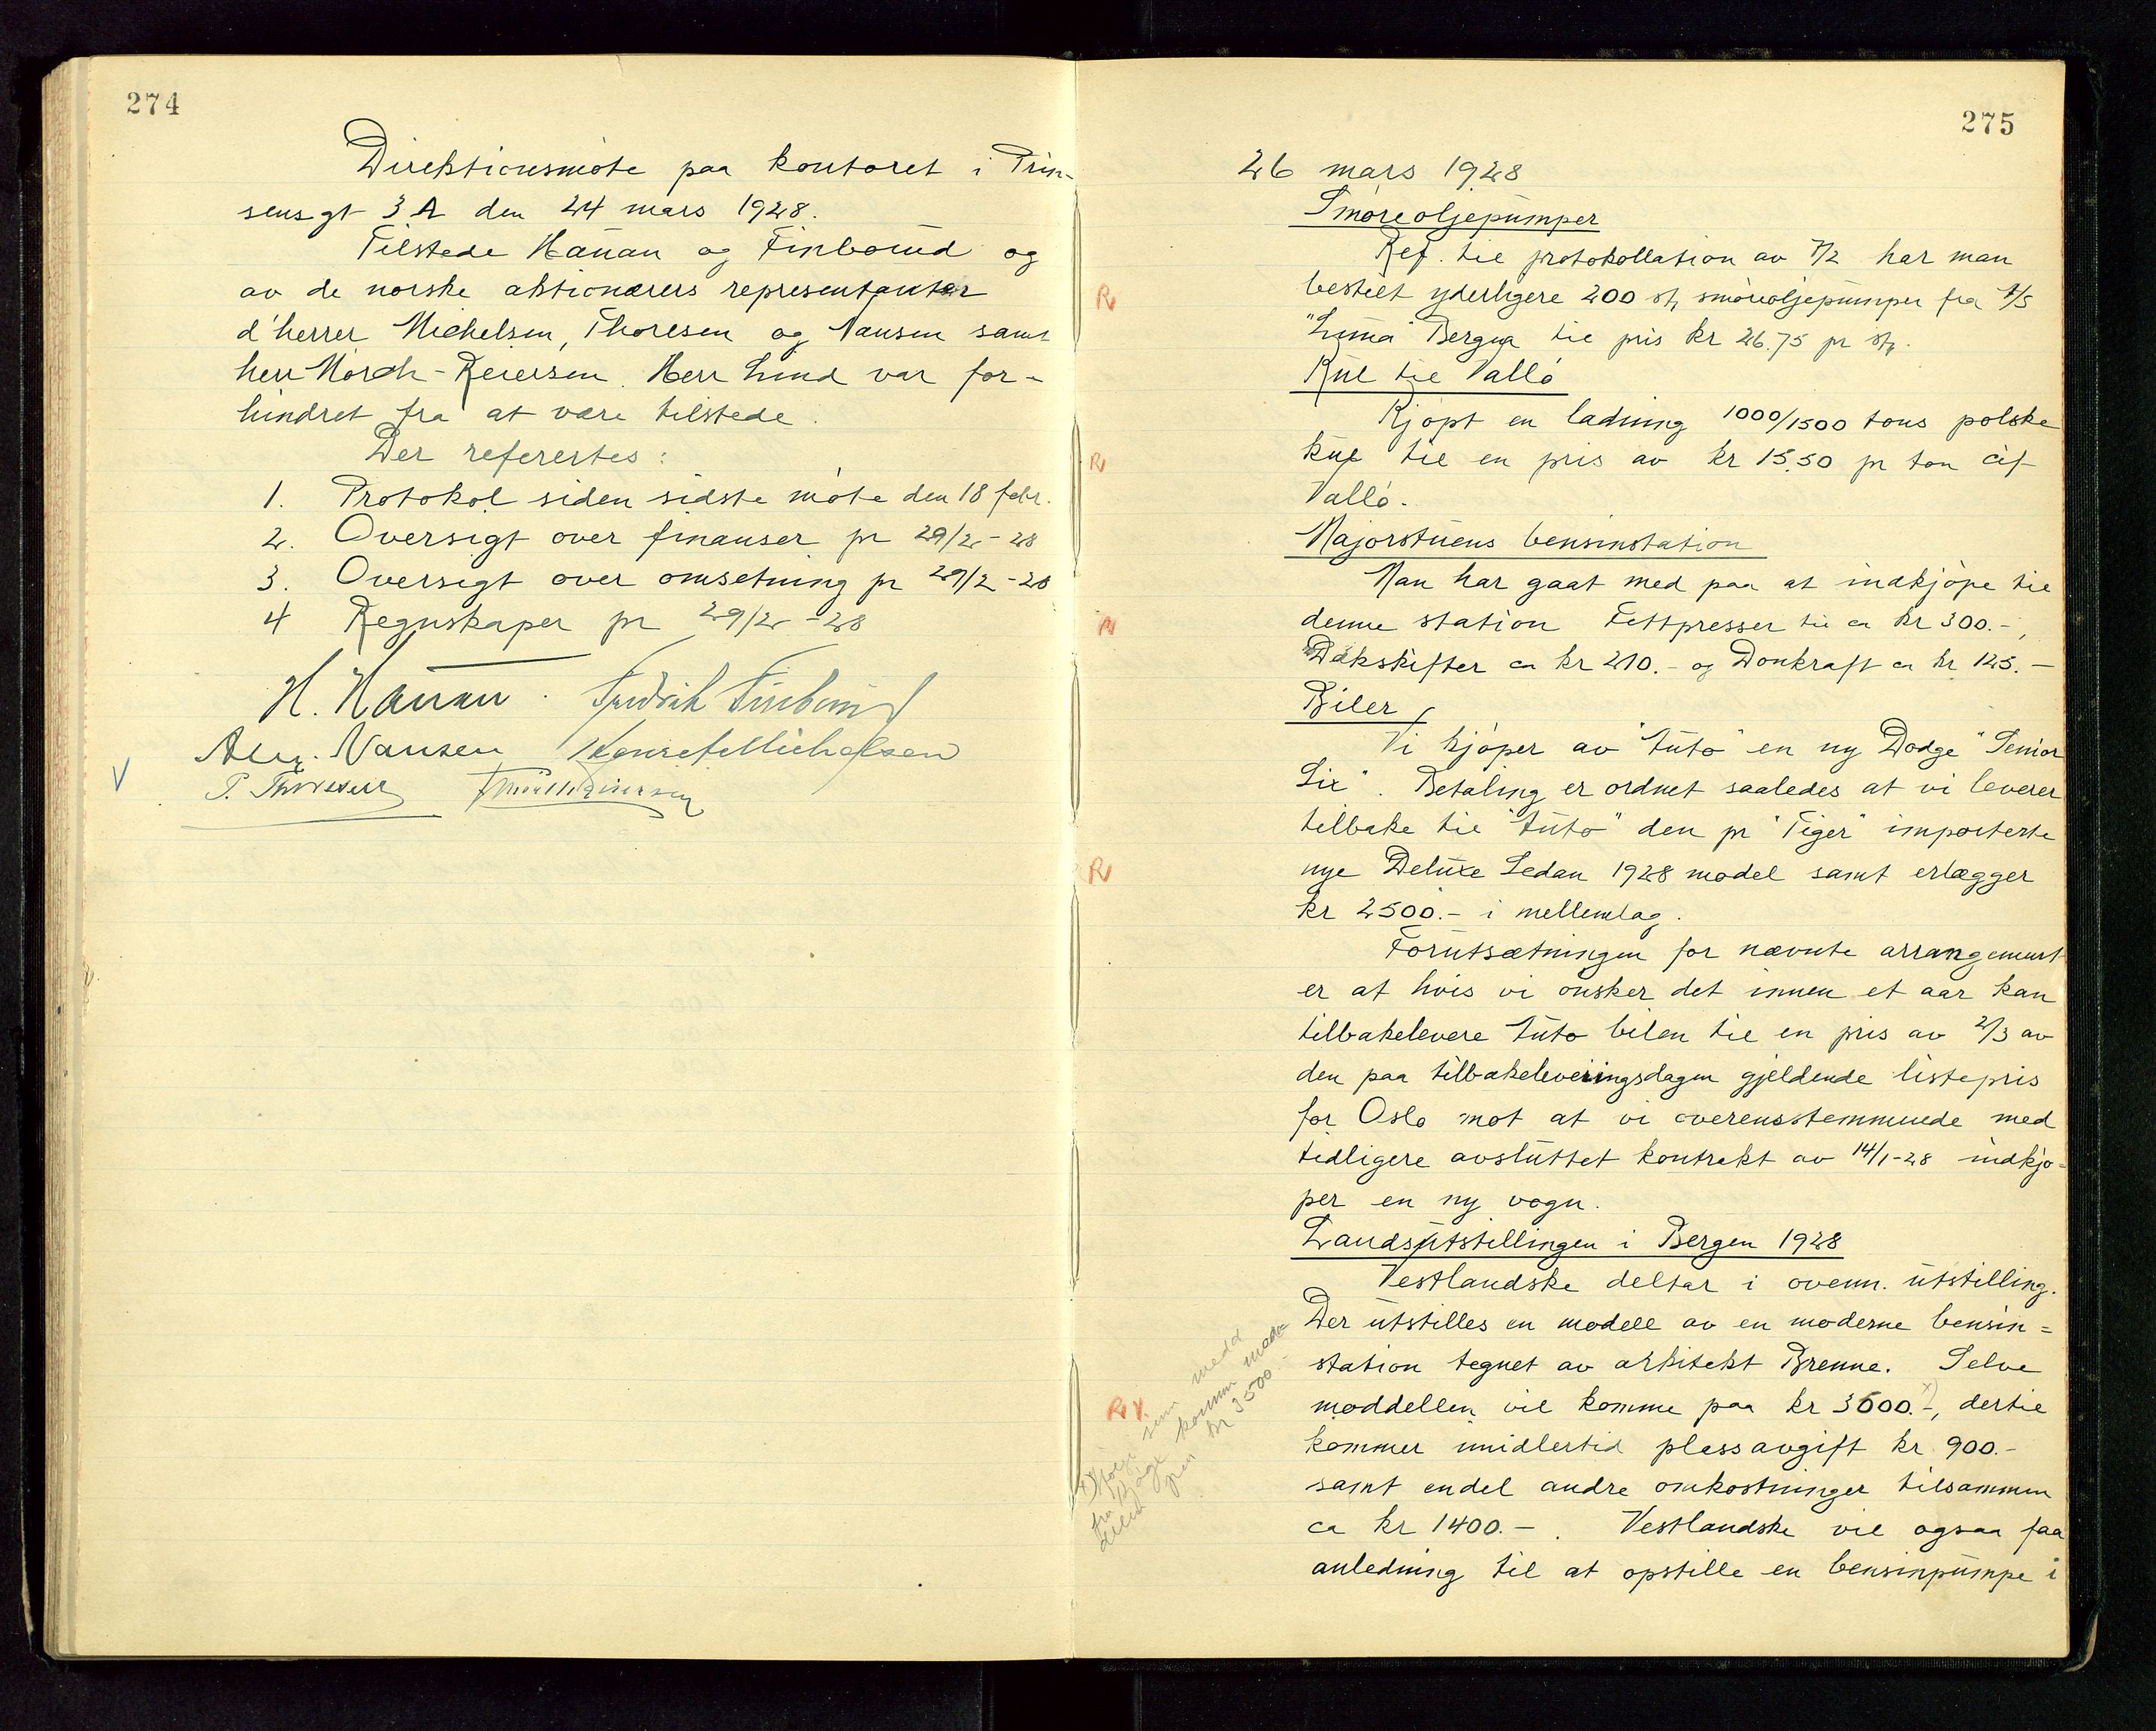 274
Direktionsmöte paa kontoret i Prin-
sensgt 3A den 24 mars 1928.
Tilstede Hanan og Finborud og
av de norske aktionærers representanter
d'herrer Michelsen, Thoresen og Nansen samt
herr Mörch-Reiersen. Herr Lind var for-
hindret fra at være tilstede.
Der referertes:
1. Protokol siden sidste möte den 18 febr.
2. Oversigt over finanser pr 29/2-28
3. Oversigt over omsetning pr 29/2-28
4 Regnskaper pr 29/2-28
H. Hanan. Fredrik Finborud
Alex. Nansen Michelsen
P. Thoresen
V
275
26 mars 1928
Smöreoljepumper
Ref. til protokollation av 7/2 har man
R
bestilt yderligere 200 st, smöreoljepumper fra A/S
"Luna" Bergen til pris kr 26.75 pr st,.
Kul til Vallö
Kjöpt en ladning 1000/1500 tons polske
R
kul til en pris av kr 15.50 pr ton cif
Vallö.
Majorstuens bensinstation
Man har gaat med paa at indkjöpe til
R
denne station Fettpresser til ca kr 300.-,
Dækskifter ca kr 210.- og Donkraft ca kr 125.-
Biler
Vi kjöper av "Auto" en ny Dodge "Senior
Six". Betaling er ordnet saaledes at vi leverer
tilbake til "Auto" den pr "Tiger" importerte
R
nye Deluxe Sedan 1928 model samt erlægger
kr 2500.- i mellemlag.
Forutsætningen for nævnte arrangement
er at hvis vi önsker det innen et aar kan
tilbakelevere Auto bilen til en pris av 2/3 av
den paa tilbakeleveringsdagen gjeldende listepris
for Oslo mot at vi overensstemmende med
tidligere avsluttet kontrakt av 14/1-28 indkjö-
per en ny vogn.
Landsutstillingen i Bergen 1928
Vestlandske deltar i ovenn. utstilling.
Der utstilles en modell av en moderne bensin=
station tegnet av arkitekt Brenne. Selve
R V.
moddellen vil komme paa kr 3600.-x), dertil
kommer imidlertid plassavgift kr 900.-
samt endel andre omkostninger tilsammen
ca kr 1400.-. Vestlandske vil ogsaa faa
anledning til at opstille en bensinpumpe i
medd
fra komm
kr 3500.-